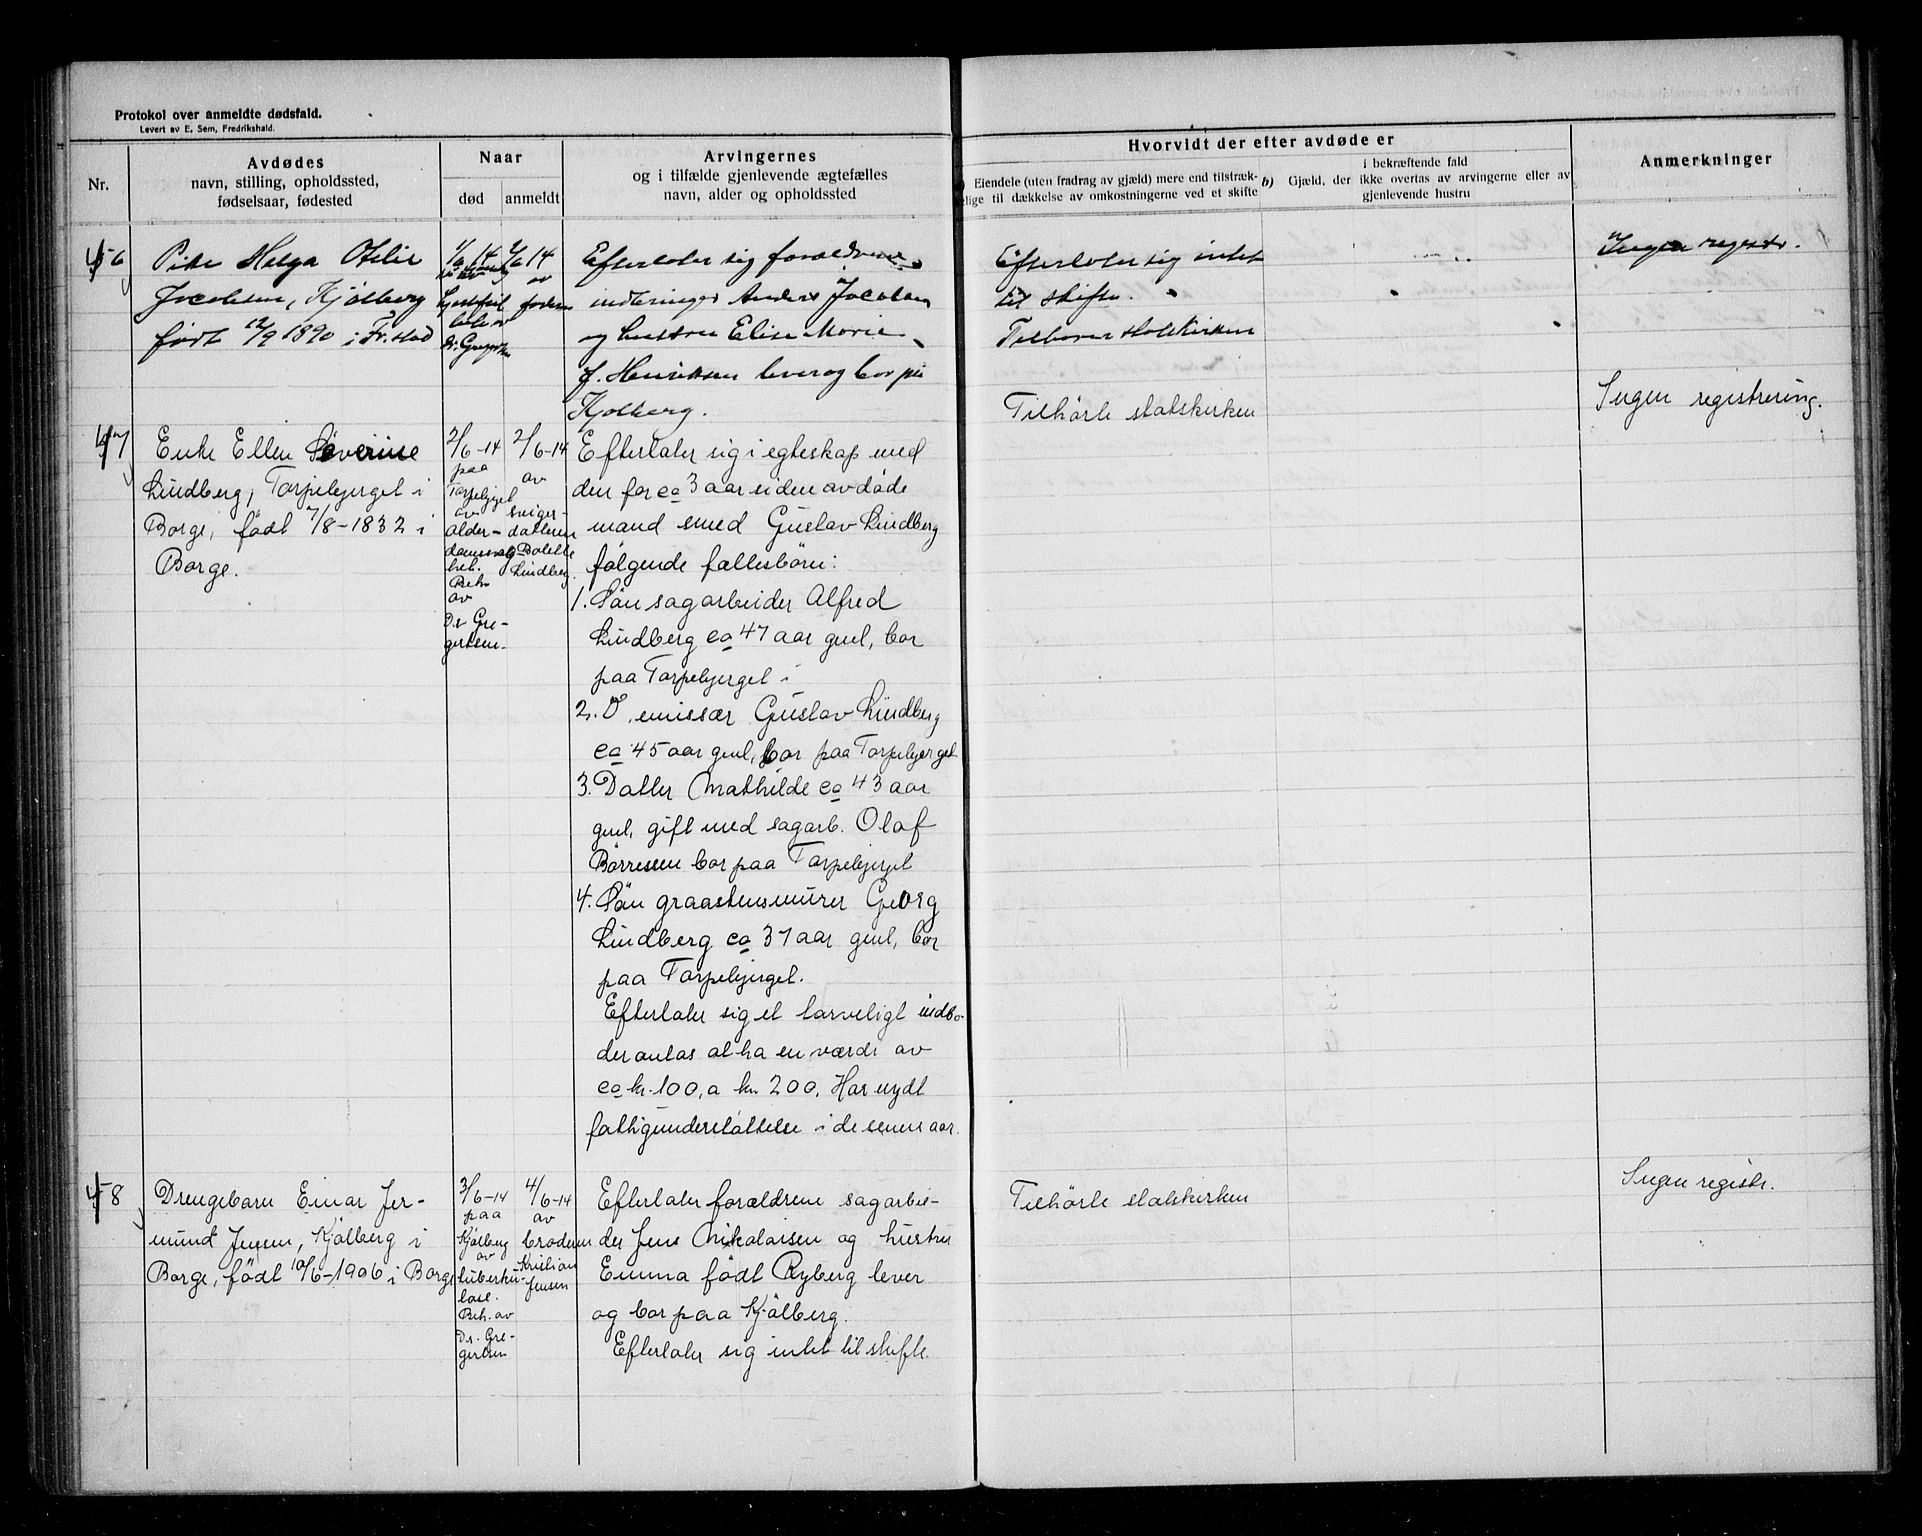 Protokol over anmeldte dødsfald.
Levert av E. Sem, Fredrikshald.
Nr.
Avdødes
navn, stilling, opholdssted,
fødselsaar, fødested
Naar
død
anmeldt
Arvingernes
og i tilfælde gjenlevende ægtefælles
navn, alder og opholdssted
Hvorvidt der efter avdøde er
Eiendele (uten fradrag av gjæld) mere end tilstræk-
elige til dækkelse av omkostningerne ved et skifte
i bekræftende fald
b) Gjæld, der ikke overtas av arvingerne eller av
gjenlevende hustru
Anmerkninger
6
Pike Helga Otilie
Jacobsen, Kjølberg
født 12/9 1890 i Fr.stad
1/6 14
2/6 14
av
Efterlater sig forældrene
Anders Jacobsen
og hustru Elise Marie
f. Henriksen lever og bor på
Kjølberg.
Efterlater sig intet
til skifte.
Tilhører statskirken
Ingen registr.
7
Enke Ellen Severine
Lindberg, Torpebjerget i
Borge, født 7/8-1832 i
Borge.
2/6-14
paa
Torpebjerget
av
alder-
domssvag-
het.
Beh.
av
Dr Gre-
gertsen.
2/6-14
av
sviger-
datteren
Bolette
Lindberg.
Efterlater sig i egteskap med
den for ca 3 aar siden avdøde
mand smed Gustav Lindberg
følgende fællesbörn:
1. Sön sagarbeider Alfred
Lindberg ca 47 aar gml, bor
paa Torpebjerget i
2. D, emissær Gustav Lindberg
ca 45 aar gml, bor paa Torpebjerget
3. Datter Mathilde ca 43 aar
gml, gift med sagarb. Olaf
Börresen bor paa Torpebjerget
4. Sön graastensmurer Georg
Lindberg ca 37 aar gml, bor
paa Torpebjerget.
Efterlater sig et tarveligt indbo
der antas at ha en værdi av
ca kr. 100, a kr. 200, Har nydt
fattigunderstöttelse i de senere aar.
Tilhørte statskirken
Ingen registrering.
8
Drengebarn Einar Jer-
mund Jensen, Kjölberg i
Borge, født 10/6-1906 i Borge
3/6-14
paa
Kjølberg
av
tuberku-
lose.
Beh. av
Dr. Gre-
gertsen
4/6-14
av
broderen
Kristian
Jensen
Efterlater forældrene sagarbei-
der Jens Nikolaisen og hustru
Emma født Ryberg lever
og bor paa Kjölberg.
Efterlater sig intet til skifte.
Tilhørte statskirken
Ingen registr.